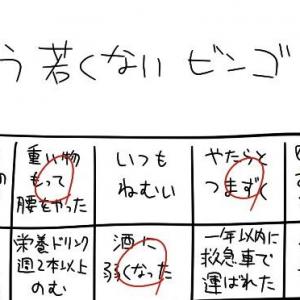 う若くないビンゴ
の
重い物
もって
腰をやった
いつも
ねむい
やたらと
つまずく
栄養ドリンク
週2本以上
のむ
酒に
弱くなった
一年以内に
救急車で
運ばれた